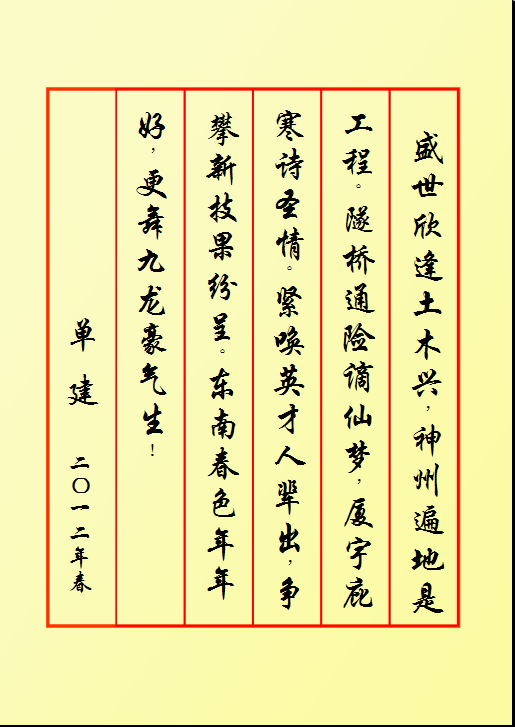 盛世欣逢土木兴，神州遍地是
工程。隧桥通险谪仙梦，厦宇庇
寒诗圣情。紧唤英才人辈出，争
攀新技果纷呈。东南春色年年
好，更舞九龙豪气生！
单建 二〇一二年春